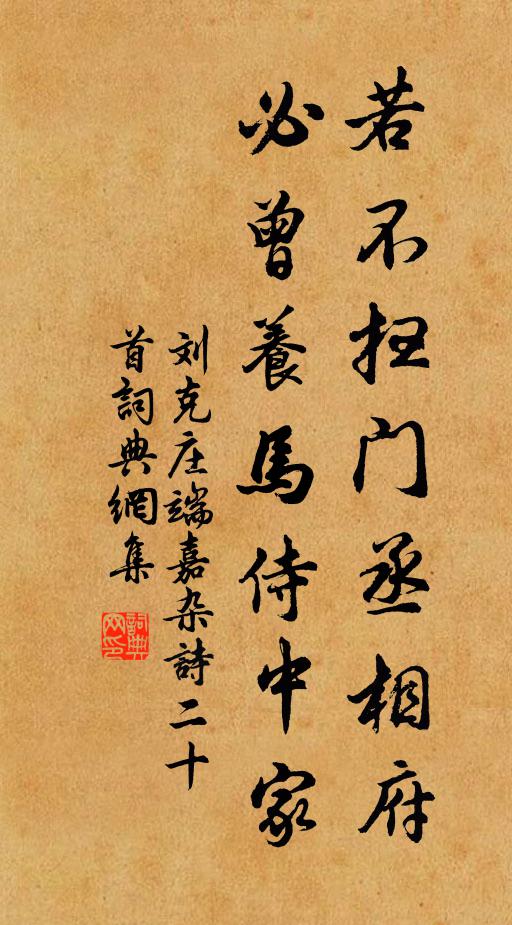 若不扫门丞相府
必曾養馬侍中家
刘克庄端嘉杂詩二十
首詞典網集
詞典网印